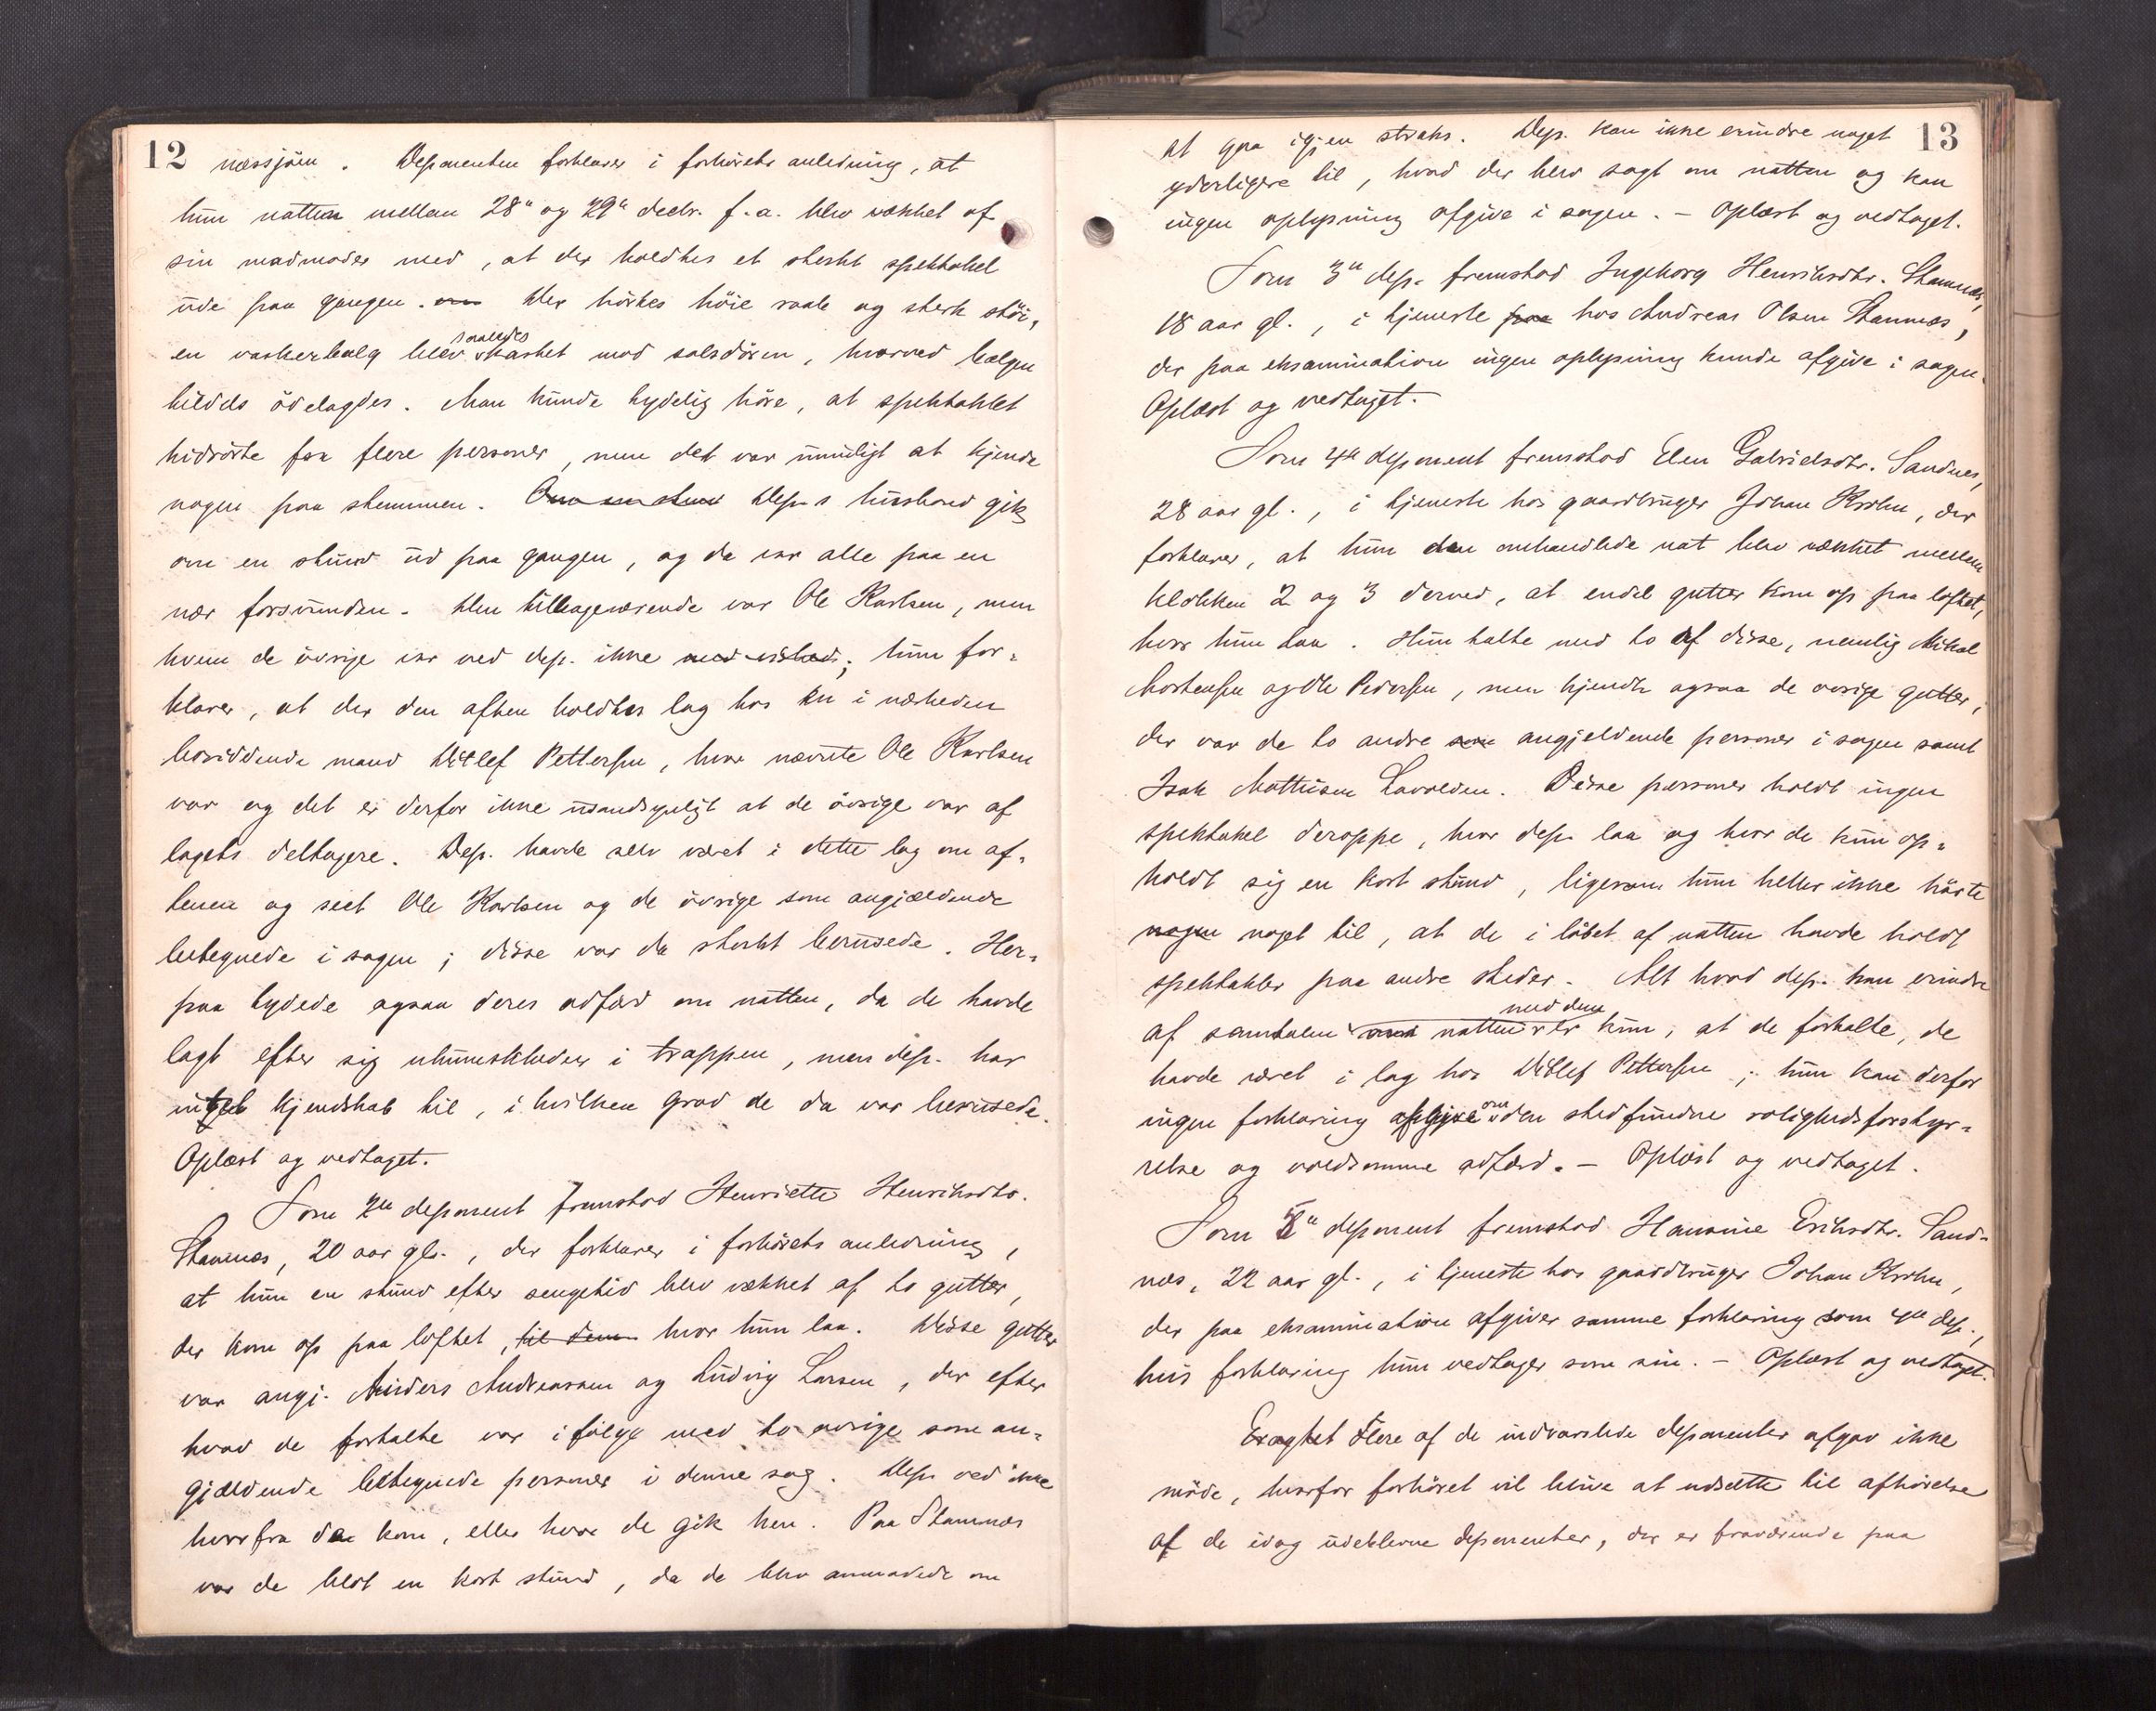 12
næssjøen. Deponenten forklarer i forhørets anledning, at
hun natten mellem 28de og 29de decbr. f.a. blev vækket af
sin madmoder med, at der holdtes et sterkt spektakel
ude paa gangen. Der hørtes høie raab og sterk støi,
en vaskerbalg blev saaledes kastet mod salsdøren, hvorved balgen
tildels ødelagdes. Man kunde tydelig høre, at spektaklet
hidrørte fra flere personer, men det var umuligt at kjende
nogen paa stemmen. Dep.s husbond gik
om en stund ud paa gangen, og da var alle paa en
nær forsvunden. Den tilbageværende var Ole Karlsen, men
hvem de øvrige var ved dep. ikke med vished; hun for-
klarer, at der den aften holdtes lag hos en i nærheden
bosiddende mand Ditlef Pettersen, hvor nævnte Ole Karlsen
var og det er derfor ikke usandsynligt at de øvrige var af
lagets deltagere. Dep. havde selv været i dette lag om af-
tenen og seet Ole Karlsen og de øvrige som angjældende
betegnede i sagen; disse var da sterkt berusede. Her-
paa tydede ogsaa deres adfærd om natten, da de havde
lagt efter sig uhumskheder i trappen, men dep. har
intet kjendskab til, i hvilken grad de da var berusede.
Oplæst og vedtaget.
Som 2de deponent fremstod Henriette Henriksdtr.
Stamnæs, 20 aar gl., der forklarer i forhørets anledning,
at hun en stund efter sengetid blev vækket af to gutter,
der kom op paa loftet, til dem hvor hun laa. Disse gutter
var angj. Anders Andreassen og Ludvig Larsen, der efter
hvad de fortalte var i følge med to øvrige som an-
gjældende betegnede personer i denne sag. Dep. ved ikke
hvorfra de kom, eller hvor de gik hen. Paa Stamnæs
var de blot en kort stund, da de blev anmodede om
13
at gaa igjen straks. Dep. kan ikke erindre noget
yderligere til, hvad der blev sagt om natten og kan
ingen oplysning afgive i sagen. – Oplæst og vedtaget.
Som 3de dep. fremstod Ingeborg Henriksdtr. Stamnæs,
18 aar gl., i tjeneste paa hos Andreas Olsen Stamnæs,
der paa eksamination ingen oplysning kunde afgive i sagen.
Oplæst og vedtaget.
Som 4de deponent fremstod Elen Gabrielsdtr. Sandnes,
28 aar gl., i tjeneste hos gaardbruger Johan Krohn, der
forklarer, at hun den omhandlede nat blev vækket mellem
klokken 2 og 3 derved, at endel gutter kom op paa loftet,
hvor hun laa. Hun talte med to af disse, nemlig Mikal
Mortensen og Ole Pedersen, men kjendte ogsaa de øvrige gutter,
der var de to andre som angjeldende personer i sagen samt
Isak Mathisen Lavolden. Disse personer holdt ingen
spektakel deroppe, hvor dep. laa og hvor de kun op-
holdt sig en kort stund, ligesom hun heller ikke hørte
nogen noget til, at de i løbet af natten havde holdt
spektakler paa andre steder. Alt hvad dep. kan erindre
af samtalen med dem natten er kun, at de fortalte, de
havde været i lag hos Ditlef Pettersen; hun kan derfor
ingen forklaring afgive om den stedfundne rolighedsforstyr-
relse og voldsomme adfærd. – Oplæst og vedtaget.
Som 5de deponent fremstod Hansine Eriksdtr. Sand-
næs, 22 aar gl., i tjeneste hos gaardbruger Johan Krohn,
der paa eksamination afgiver samme forklaring som 4de dep.,
hvis forklaring hun vedtager som sin. – Oplæst og vedtaget.
Eragtet Flere af de indvarslede deponenter afgav ikke
møde, hvorfor forhøret vil blive at udsætte til afhørelse
af de idag udeblevne deponenter, der er fraværende paa